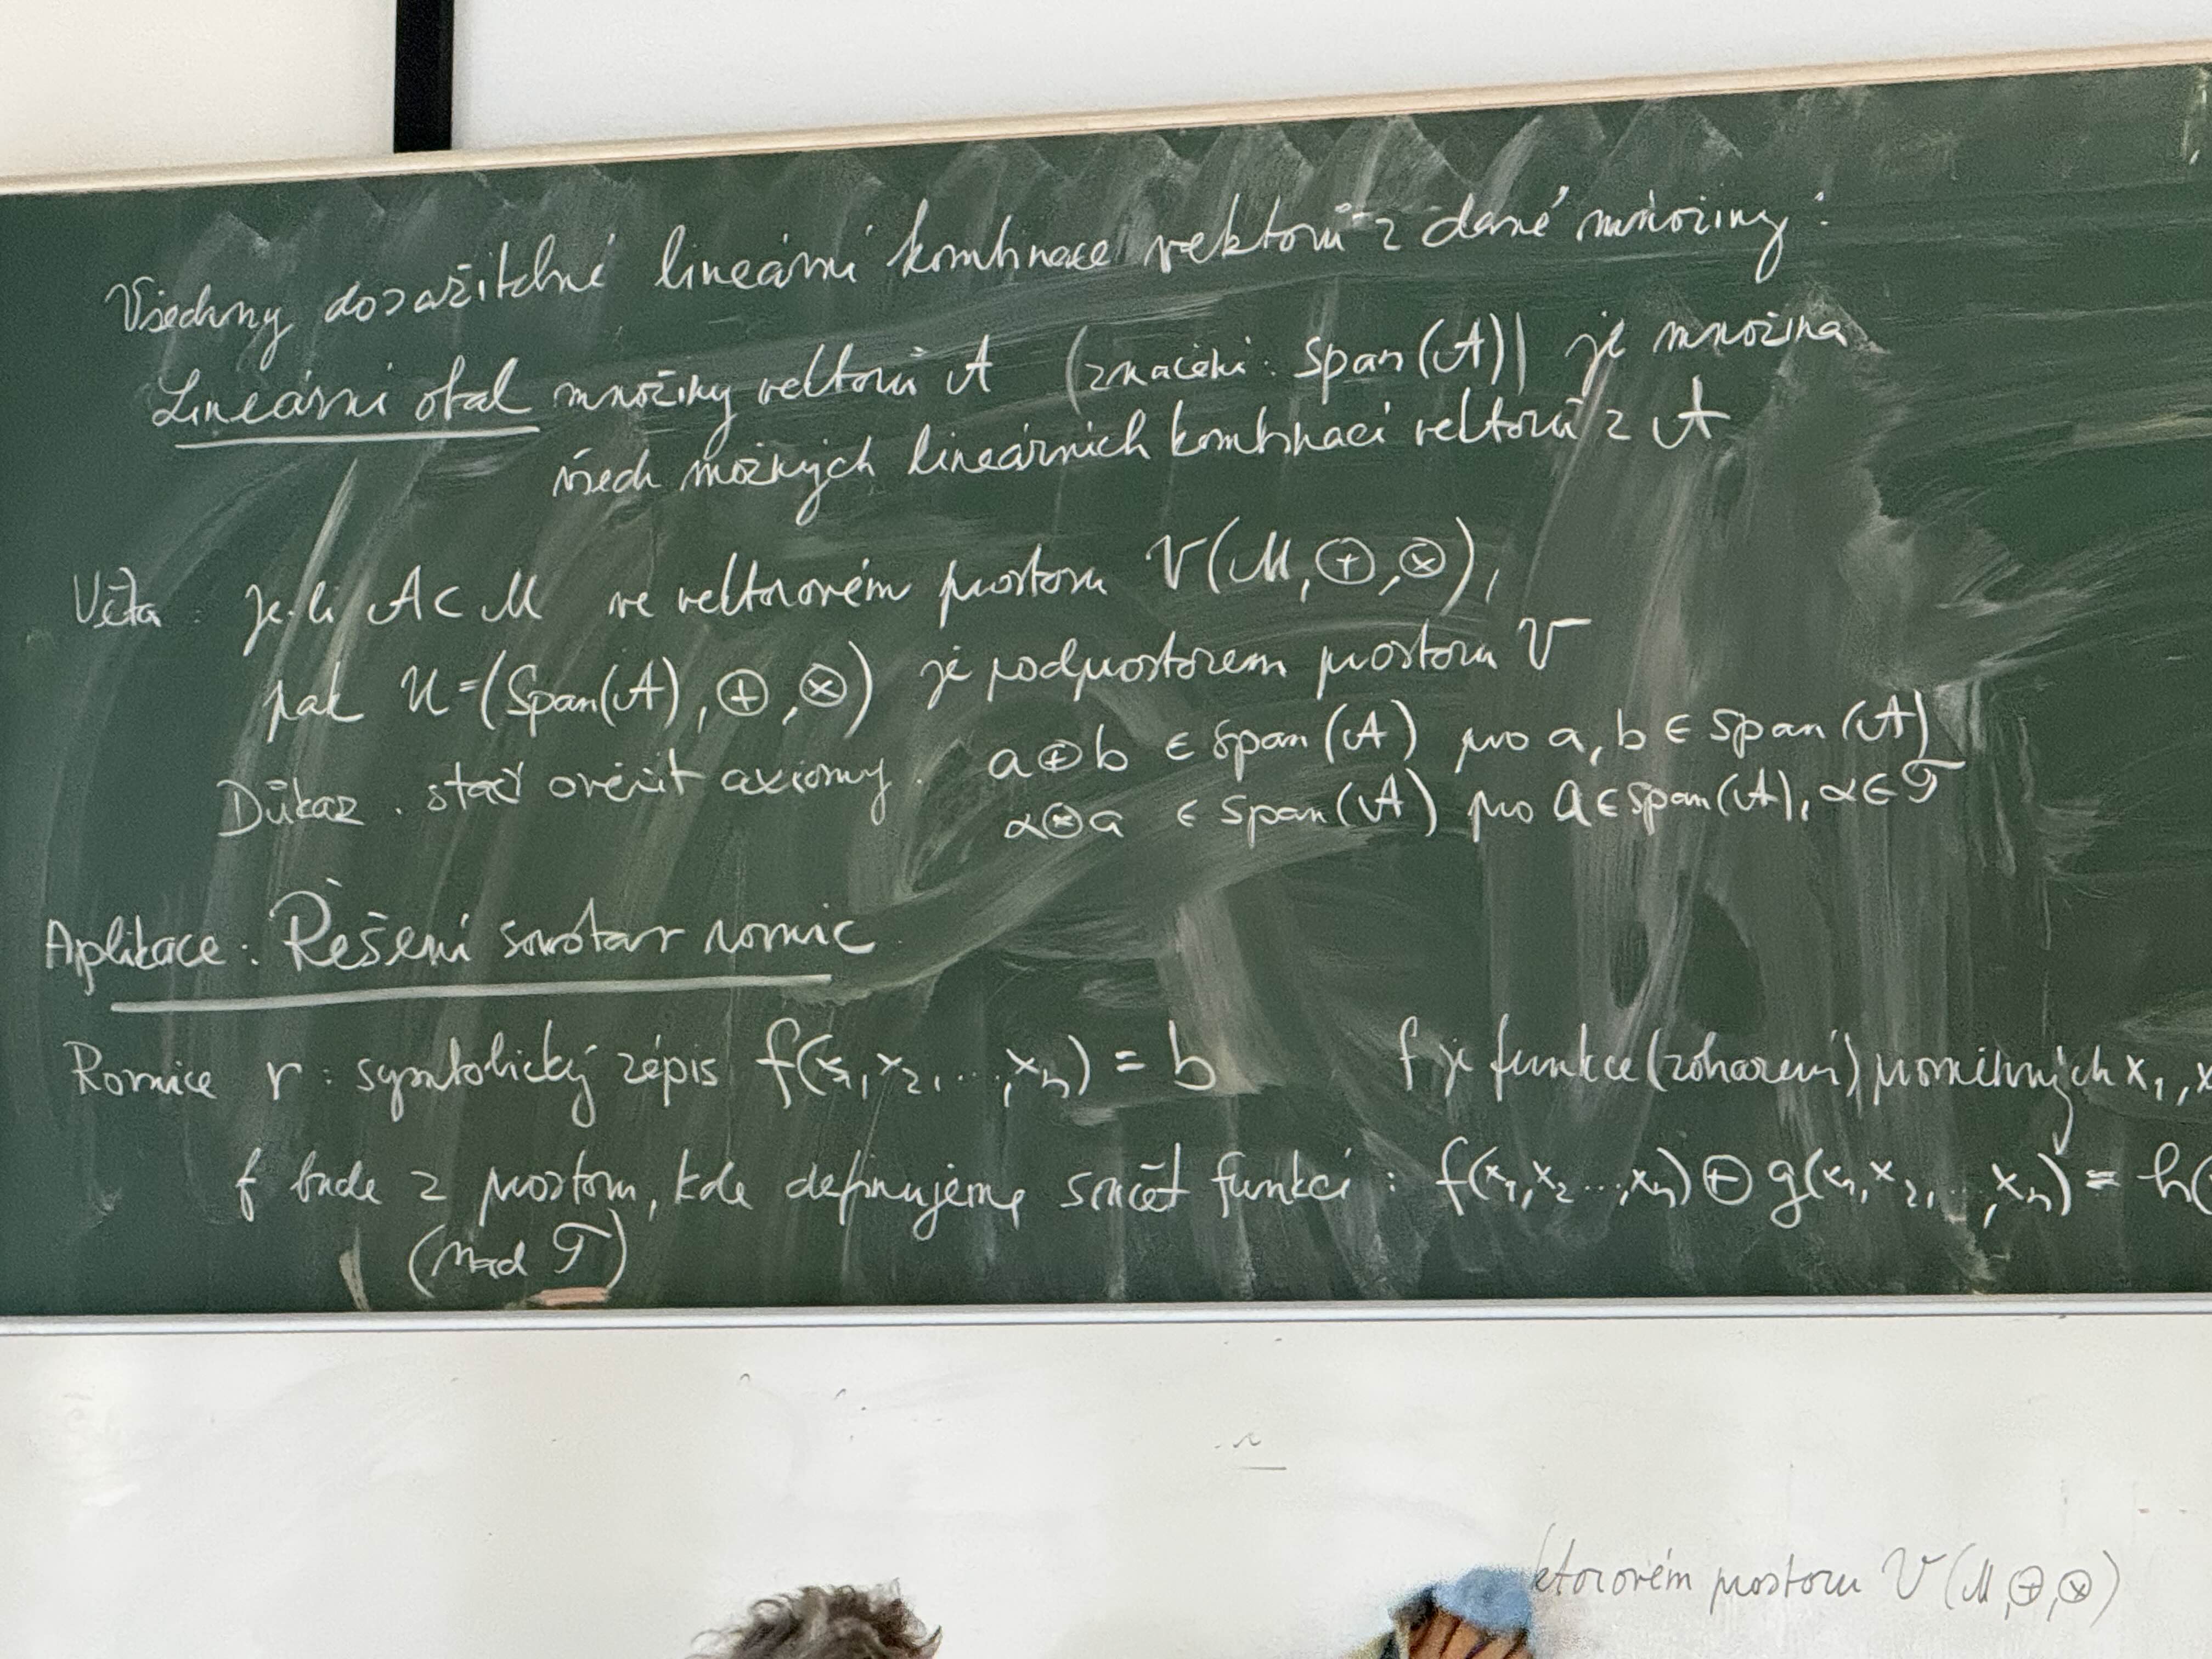 Všechny dosažitelné lineární kombinace vektorů z dané množiny:
Lineární obal množiny vektorů A (značení: Span(A)) je množina
všech možných lineárních kombinací vektorů z A
Věta: Je-li A ⊂ M ve vektorovém prostoru V(M, ⊕, ⊗),
pak U = (Span(A), ⊕, ⊗) je podprostorem prostoru V
Důkaz. stačí ověřit axiomy. a⊕b ∈ Span(A) pro a, b ∈ Span(A)
α⊗a ∈ Span(A) pro a ∈ Span(A), α ∈ T
Aplikace: Řešení soustav rovnic
Rovnice r: symbolický zápis f(x₁, x₂, ..., xₙ) = b f je funkce (zobrazení) proměnných x₁, x
f bude z prostoru, kde definujeme součet funkcí: f(x₁, x₂ ..., xₙ) ⊕ g(x₁, x₂, ..., xₙ) = h(
(nad T)
ktorovém prostoru V(M, ⊕, ⊗)